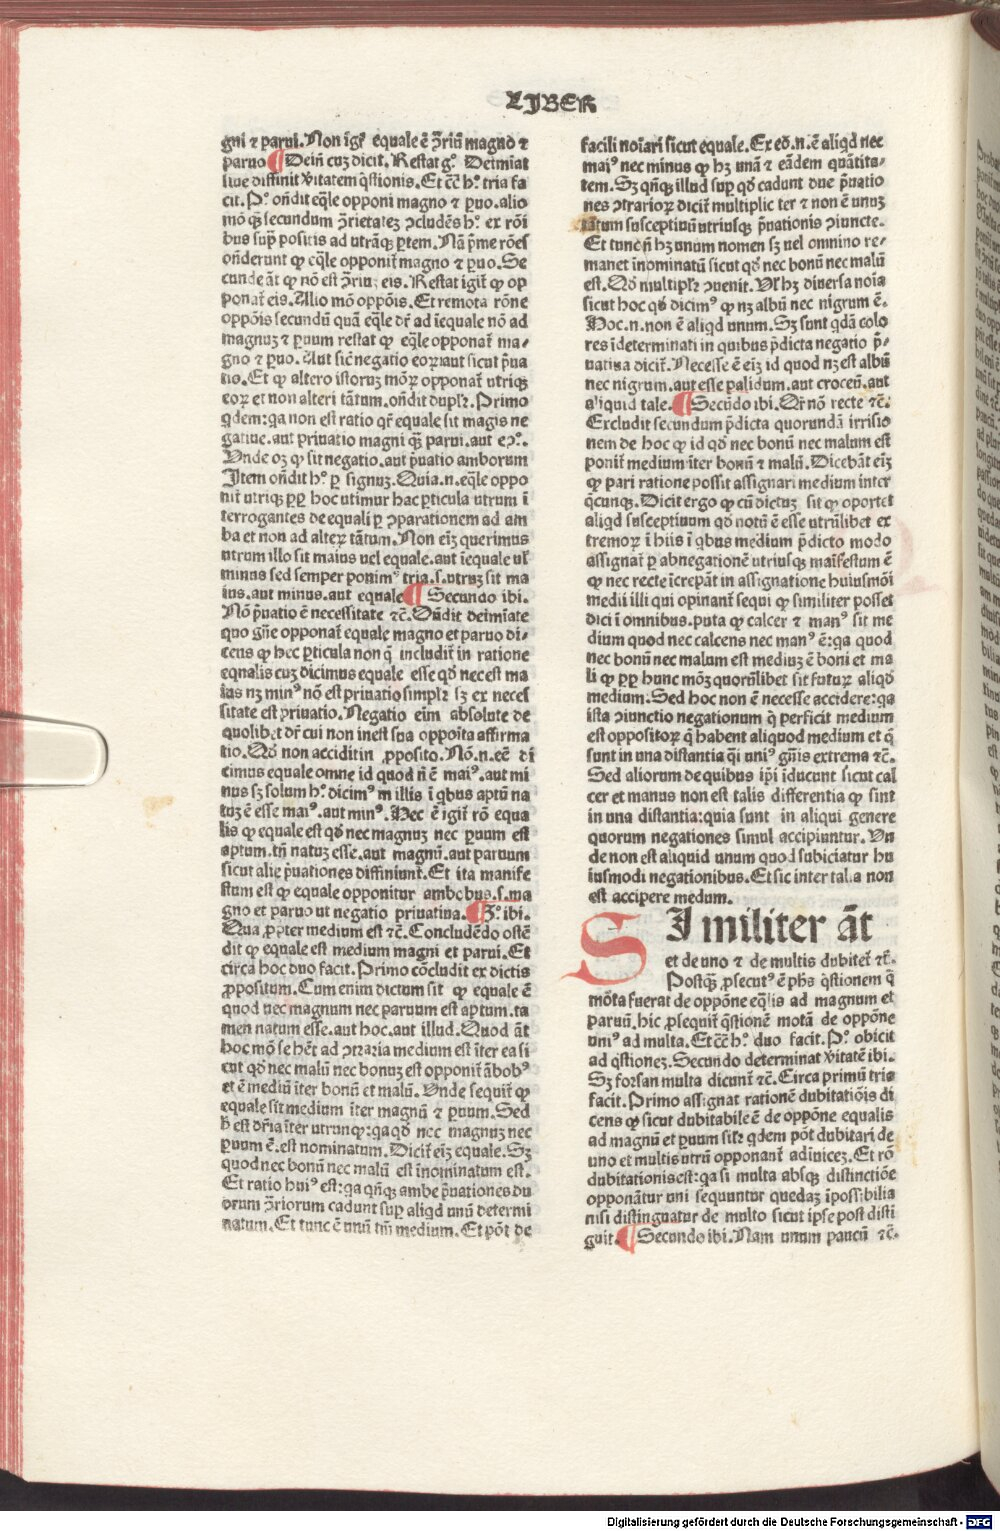 LIBER
gni ⁊ parui. Non igr̃ equale ē ↄ̃riũ magno ⁊
paruo ¶ Dein̄ cuʒ dicit. Restat gͦ. Deimīat
siue diffinit v̄itatem q̄stionis. Et cc̄ hͦ. tria fa
cit. Pͦ. on̄dit eq̄le opponi magno ⁊ ꝑuo. alio
mō qꝫ secundum ↄ̃rietateʒ ↄcludēs hͦ. ex rōi
bus supͣ positis ad utrāqꝫ ꝑtem. Nā p̃me rōes
on̄derunt ꝙ eq̄le opponit̃ magno ⁊ ꝑuo. Se
cunde āt ꝙ nō est ↄ̃riũ eis. Restat igit̃ ꝙ op
ponat̃ eis. Alio mō oppōis. Et remota rōne
oppōis secundũ quā eq̄le dr̃ ad īequale nō ad
magnuʒ ⁊ ꝑuum restat ꝙ eq̄le opponat̃ ma-
gno ⁊ ꝑuo. Aut sic̃ negatio eoꝝ aut sicut p̃ua
tio. Et ꝙ altero istoruʒ moꝝ opponat̃ utriqꝫ
eoꝝ et non alteri tm̄tum. on̄dit duplr̃. Primo
qdem: qa non est ratio qr̃ equale sit magis ne
gatiue. aut priuatio magni qꝫ parui. aut eↄͦ.
Unde oʒ ꝙ sit negatio. aut p̃uatio amborum
Item on̄dit hͦ. ꝑ signuʒ. Quia. n. eq̄le oppo
nit̃ utriqꝫ ꝑꝑ hoc utimur hac ꝑticula utrum ī
terrogantes de equali ꝑ ↄparationem ad am
ba et non ad alteꝝ tātum. Non eiʒ querimus
utrum illo sit maius uel equale. aut īequale ul̃
minus sed semper ponimꝰ tria. s. utruʒ sit ma
ius. aut minus. aut equale ¶ Secundo ibi.
Nō p̃uatio ē necessitate ⁊c̃. On̄dit deimīate
quo gn̄e opponat̃ equale magno et paruo di-
cens ꝙ hec ꝑticula non q̄ includit̃ in ratione
equalis cuʒ dicimus equale esse qd̄ nec est ma
ius nʒ minꝰ nō est priuatio simplr̃ sʒ ex neces
sitate est priuatio. Negatio eim absolute de
quolibet dr̃ cui non inest sua opposita affirma
tio. Qd̄ non accidit in ꝓposito. Nō. n. ee̅ di
cimus equale omne id quod n̄ ē maiꝰ. aut mi
nus sʒ solum hͦ. dicimꝰ in illis ī qbus aptũ na
tuʒ ē esse maiꝰ. aut minꝰ. Hec ē igit̃ rō equa
lis ꝙ equale est qd̄ nec magnuʒ nec ꝑuum est
aptum. tn̄ natuʒ esse. aut magnũ. aut paruum
sicut alie p̃uationes diffiniunt̃. Et ita manife
stum est ꝙ equale opponitur ambobus. s. ma
gno et paruo ut negatio priuatiua. ¶ 3ͦ. ibi.
Qua ꝓpter medium est ⁊c̃. Concludēdo ostē
dit ꝙ equale est medium magni et parui. Et
circa hoc duo facit. Primo cōcludit ex dictis
ꝓpositum. Cum enim dictum sit ꝙ equale ē
quod nec magnum nec paruum est aptum. ta
men natum esse. aut hoc. aut illud. Quod āt
hoc mō se het̃ ad ↄtraria medium est īter ea si
cut qd̄ nec malũ nec bonuʒ est opponit̃ ābobꝰ
et ē mediũ īter bonũ et malũ. Unde sequit̃ ꝙ
equale sit medium īter magnũ ⁊ ꝑuum. Sed
h̄ est dr̃ia īter utrunqꝫ: qa qd̄ nec magnuʒ nec
ꝑuum ē. est nominatum. Dicit̃ eiʒ equale. Sʒ
quod nec bonũ nec malũ est īnominatum est.
Et ratio huiꝰ est: qa qn̄qꝫ ambe p̃uationes du
orum ↄ̃riorum cadunt supͣ aliqd unũ determi
natum. Et tunc ē unũ tm̄ medium. Et pōt de
facili noīari sicut equale. Ex eo. n. ē aliqd nec
maiꝰ nec minus ꝙ hʒ unā ⁊ eādem quātita-
tem. Sʒ qn̄qꝫ illud supͣ qd̄ cadunt due p̃uatio
nes ↄtrarioꝝ dicit̃ multiplic̃ter ⁊ non ē unuʒ
tātum susceptiuũ utriusqꝫ p̃uationis ↄiuncte.
Et tunc n̄ hʒ unum nomen sʒ uel omnino re-
manet īnominatũ sicut qd̄ nec bonũ nec malũ
est. Qd̄ multiplr̃ ↄuenit. Ul̃ hʒ diuersa noīa
sicut hoc qd̄ dicimꝰ ꝙ nʒ albũ nec nigrum ē.
Hoc. n. non ē aliqd unum. Sʒ sunt qdā colo
res īdeterminati in quibus p̃dicta negatio p̃-
uatiua dicit̃. Necesse ē eiʒ id quod nʒ est albũ
nec nigrum. aut esse palidum. aut croceũ. aut
aliquid tale. ¶ Secũdo ibi. Qr̃ nō recte ⁊c̃.
Excludit secundum p̃dicta quorundā irrisio
nem de hoc ꝙ id qd̄ nec bonũ nec malum est
ponit̃ medium īter bonũ ⁊ malũ. Dicebāt eiʒ
ꝙ pari ratione possit assignari medium inter
qcunqꝫ. Dicit ergo ꝙ cũ dictuʒ sit ꝙ oportet
aliqd susceptiuum qd̄ notũ ē esse utrũlibet ex
tremoꝝ ī hiis ī qbus medium p̃dicto modo
assignat̃ ꝑ abnegationē utriusqꝫ maīfestum ē
ꝙ nec recte īcrepāt in assignatione huiusmōi
medii illi qui opinant̃ sequi ꝙ similiter posset
dici ī omnibus. puta ꝙ calcer ⁊ manꝰ sit me
dium quod nec calcens nec manꝰ ē: qa quod
nec bonũ nec malum est mediuʒ ē boni et ma
li ꝙ ꝑꝑ hunc mōʒ quorūlibet sit futuꝝ aliqd̄
medium. Sed hoc non ē necesse accidere: qa
ista ↄiunctio negationum q̄ perficit medium
est oppositoꝝ q̄ habent aliquod medium et q̄
sunt in una distantia q̄i uniꝰ gn̄is extrema ⁊c̃.
Sed aliorum de quibus ip̄i īducunt sicut cal
cer et manus non est talis differentia ꝙ sint
in una distantia: quia sunt in aliqui genere
quorum negationes simul accipiuntur. Un
de non est aliquid unum quod subiciatur hu
iusmodi negationibus. Et sic inter talia non
est accipere medum.
SImiliter āt
et de uno ⁊ de multis dubitet̃ ⁊c̃.
Postqꝫ ꝓsecutꝰ ē phs̃ q̄stionem q̄
mōta fuerat de oppōne eq̄lis ad magnum et
paruũ. hic ꝓsequit̃ q̄stionē motā de oppōne
uniꝰ ad multa. Et cc̄ hͦ. duo facit. Pͦ. obicit
ad q̄stioneʒ. Secundo determinat v̄itatē ibi.
Sʒ forsan multa dicunt̃ ⁊c̃. Circa primũ tria
facit. Primo assignat rationē dubitatiōis di
cens ꝙ sicut dubitabile ē de oppōne equalis
ad magnũ et ꝑuum silr̃ qdem pōt dubitari de
uno et multis utrũ opponant̃ adinuiceʒ. Et rō
dubitationis est: qa si multa absqꝫ distinctiōe
opponātur uni sequuntur quedaʒ īpossibilia
nisi distinguatur de multo sicut ipse post disti
guit. ¶ Secundo ibi. Nam unum paucũ ⁊c̃.
Digitalisierung gefördert durch die Deutsche Forschungsgemeinschaft - DFG